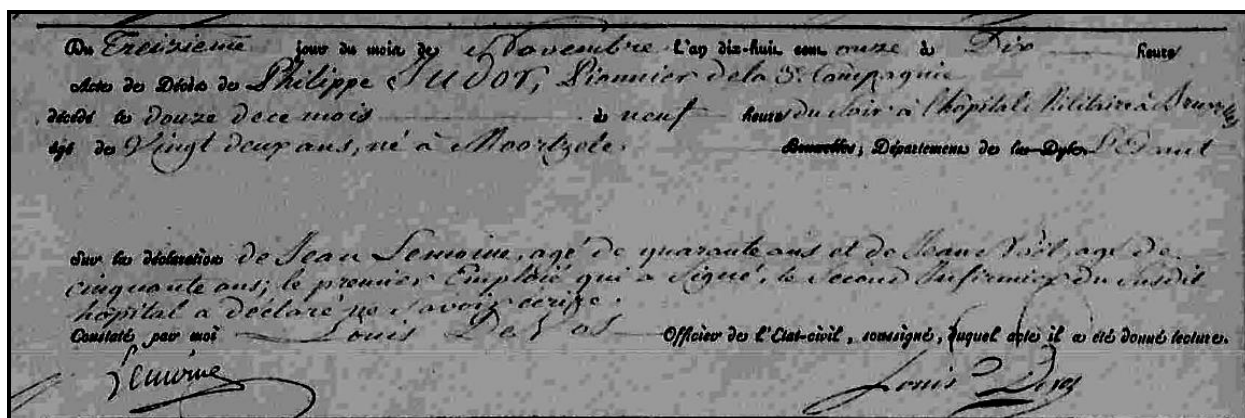 Du Treizieme jour du mois de Novembre l'an dix-huit cent onze à Dix heures
Acte de Décès de Philippe JUDOT, Pionnier de la 3e. Compagnie
décédé le douze de ce mois à neuf heures du soir à l'hôpital Militaire à Bruxelles
âgé de Vingt deux ans, né à Moortzele Bruxelles, Département de la Dyle L'Escaut
Sur la déclaration de Jean Lemoine, agé de quarante ans et de Jean Noël, agé de
cinquante ans; le premier Emploié qui a signé, le second Infirmier du susdit
hôpital a déclaré ne savoir ecrire.
Constaté par moi Louis De Vos Officier de l'Etat-civil, soussigné, duquel acte il a été donné lecture.
Lemoine Louis Devos